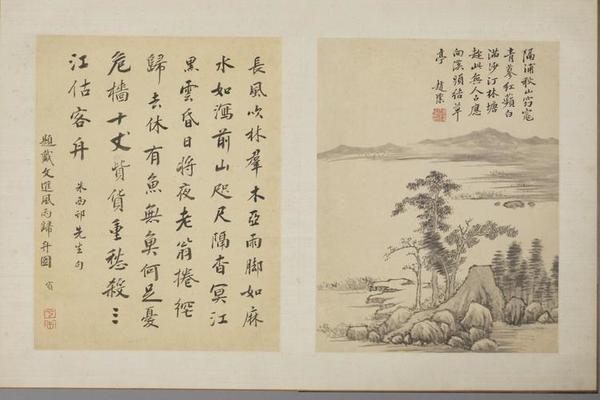 隔浦秋山窈窕
青蓼紅蘋白
滿沙汀林塘
趁此無人占應
向溪頭結草
亭 趙
長風吹林羣木亞雨脚如麻
水如瀉前山咫尺隔杳冥江
黑雲昏日將夜老翁捲
歸去休有魚無魚何足憂
危檣十丈貲貨重愁殺三
江估客舟 朱西邨先生句
題戴文進風雨歸舟圖